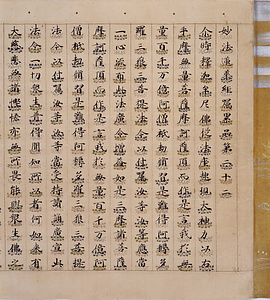 妙法蓮華經囑累品第二十一
尒時釋迦牟尼佛從法座起現大神力以右
手摩無量菩薩摩訶薩頂而作是言我於無
量百千萬億阿僧祇劫修習是難得阿耨多
羅三藐三菩提法今以付囑汝等汝等應當
一心流布此法廣令增益如是三摩諸菩薩
摩訶薩頂而作是言我於無量百千萬億阿
僧祇劫修習是難得阿耨多羅三藐三菩提
法今以付囑汝等汝等當受持讀誦廣宣此
法令一切衆生普得聞知所以者何如來有
大慈悲無諸慳悋亦無所畏能與衆生佛之